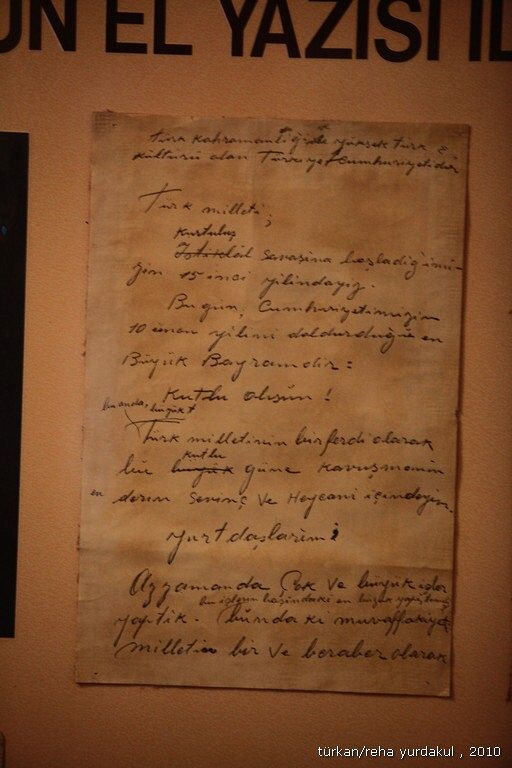 ÜN EL YAZISI İL
türk kahramanlığı ile yüksek türk
kültürü olan Türkiye Cumhuriyetidir
Türk milleti;
Kurtuluş
İstiklâl savaşına başladığımı-
zın 15 inci yılındayız.
Bugün, Cumhuriyetimizin
10 uncu yılını doldurduğu en
Büyük Bayramdır:
Kutlu olsun!
bu anda, büyük
Türk milletinin bir ferdi olarak
kutlu
bu büyük güne kavuşmanın
en
derin sevinç ve Heycanı içindeyim.
yurtdaşlarım!
Az zamanda Çok ve büyük işler
bu işlerin başındaki en büyük
yaptık. bundaki muvaffakiyet
milletin bir ve beraber olarak
türkan/reha yurdakul , 2010